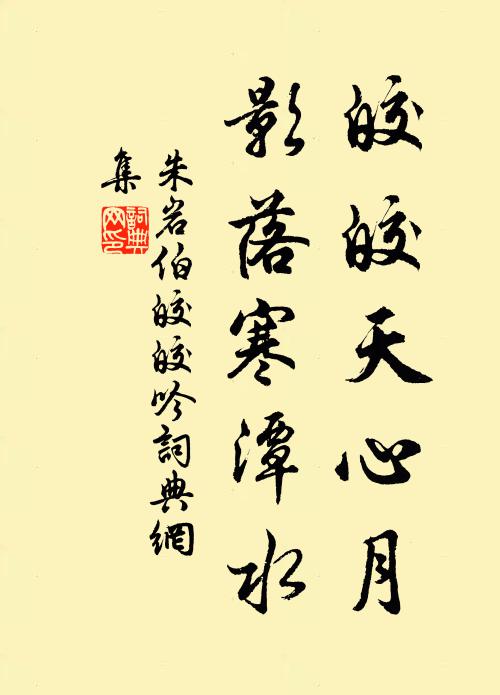 皎皎天心月
影落寒潭水
朱岩伯皎皎吟詞典網
集
詞典網印